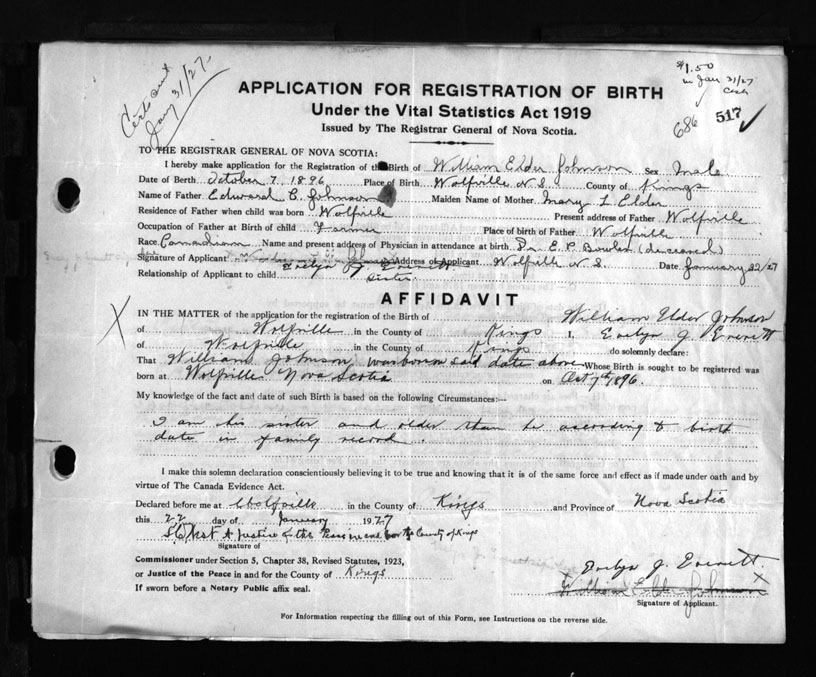 Certs sent
Jany 31/27.
$1.50
in Jan 31/27
Cash
686 517
APPLICATION FOR REGISTRATION OF BIRTH
Under the Vital Statistics Act 1919
Issued by The Registrar General of Nova Scotia.
TO THE REGISTRAR GENERAL OF NOVA SCOTIA:
I hereby make application for the Registration of the Birth of William Elder Johnson Sex Male
Date of Birth October 7, 1896 Place of Birth Wolfville N.S. County of Kings
Name of Father Edward C. Johnson Maiden Name of Mother Mary L Elder
Residence of Father when child was born Wolfville Present address of Father Wolfville
Occupation of Father at Birth of child Farmer Place of birth of Father Wolfville
Race Canadian Name and present address of Physician in attendance at birth Dr. E. P. Bowles (deceased)
Signature of Applicant Evelyn J. Everett Address of Applicant Wolfville N.S. Date January 22/27
Relationship of Applicant to child sister
AFFIDAVIT
IN THE MATTER of the application for the registration of the Birth of William Elder Johnson
of Wolfville in the County of Kings I, Evelyn J. Everett
of Wolfville in the County of Kings do solemnly declare:
That William Johnson was born said date above Whose Birth is sought to be registered was
born at Wolfville Nova Scotia on Oct 7th, 1896.
My knowledge of the fact and date of such Birth is based on the following Circumstances:—
I am his sister and older than he according to birth
date in family record.
I make this solemn declaration conscientiously believing it to be true and knowing that it is of the same force and effect as if made under oath and by
virtue of The Canada Evidence Act.
Declared before me at Wolfville in the County of Kings and Province of Nova Scotia
this 22 day of January 1927
A Justice of the Peace in and for the County of Kings
Signature of
Commissioner under Section 5, Chapter 38, Revised Statutes, 1923,
or Justice of the Peace in and for the County of Kings
If sworn before a Notary Public affix seal.
Evelyn J. Everett.
X William Elder Johnson X
Signature of Applicant.
For Information respecting the filling out of this Form, see Instructions on the reverse side.